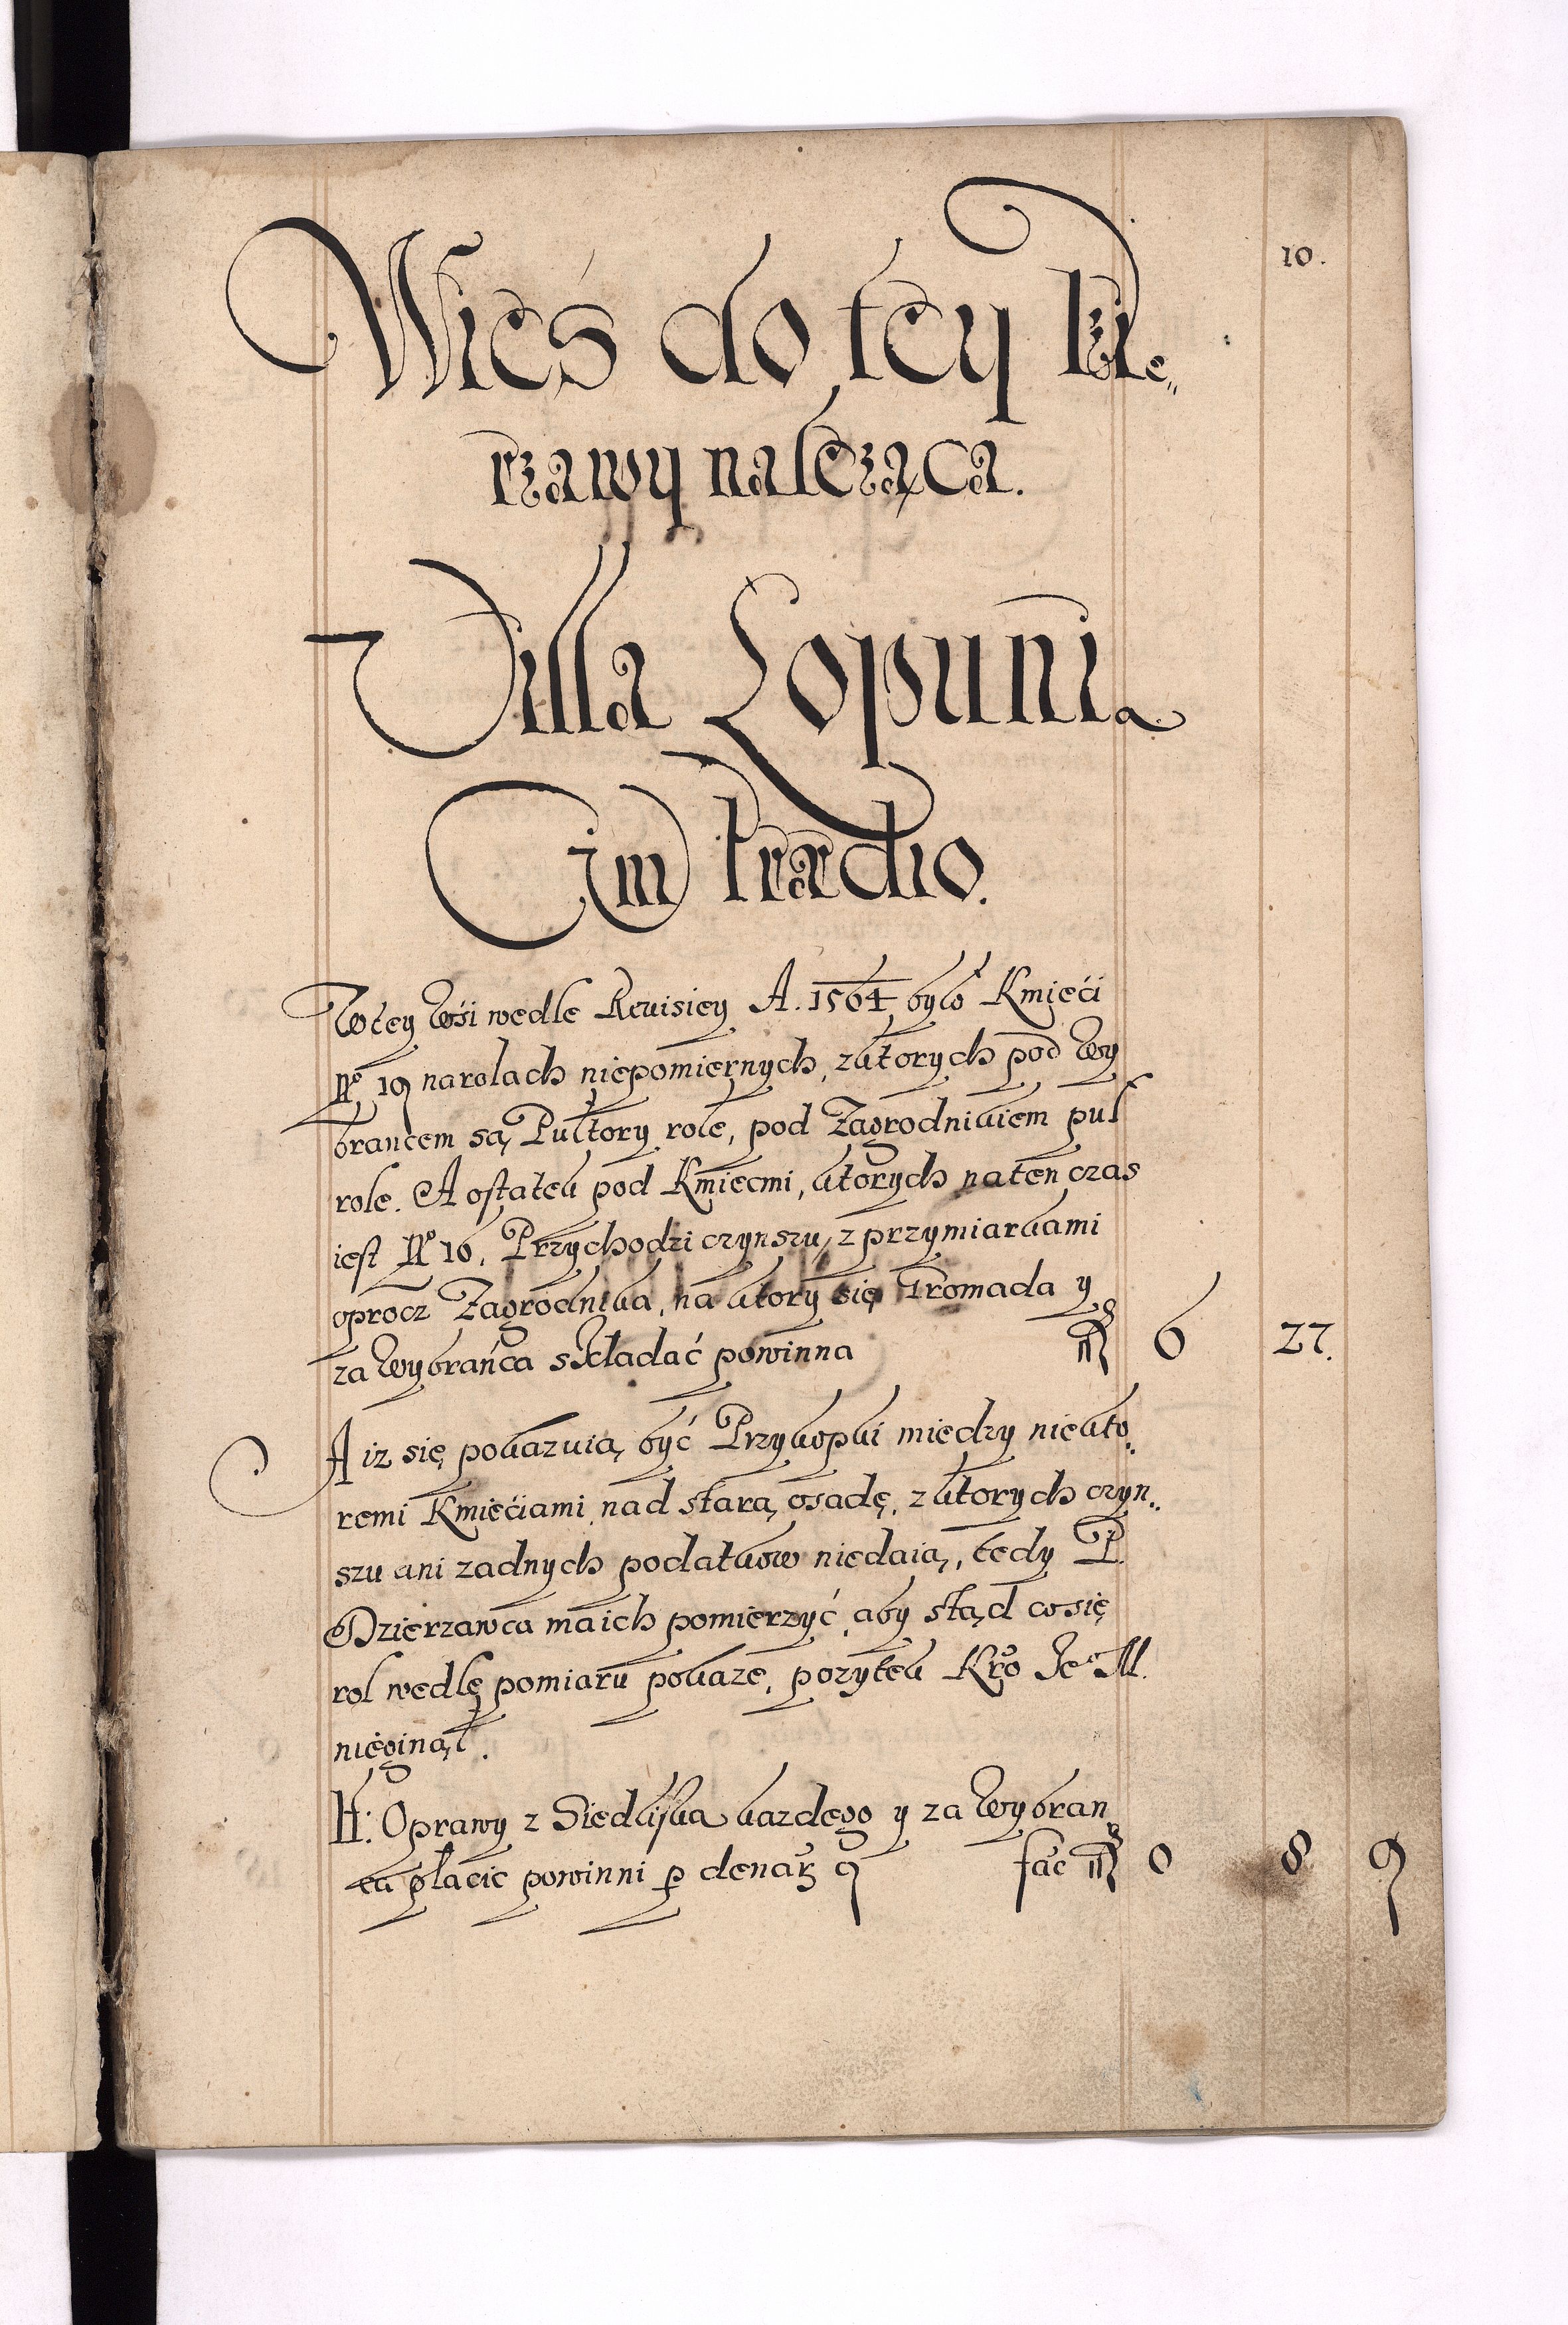 10.
Wieś do tey Dzie„
rzawy należąca.
Villa Lopunia
Cum Prædio.
W tey wsi wedle Rewisiey A. 1564 było Kmieći
Nº 19 na rolach niepomiernych, z ktorych pod Wy
brancem są Pułtory role, pod Zagrodnikiem puł
role. A ostatek pod Kmiecmi, ktorych na ten czas
iest Nº 16. Przychodzi czynszu z przymiarkami
oprocz Zagrodnika, na ktory się Gromada y
za Wybrańca składać powinna 6 27.
A iz się pokazuią być Przykopki miedzy niekto„
remi Kmiećiami nad starą osadę, z ktorych czyn„
szu ani zadnych podatkow niedaią, tedy P.
Dzierzawca ma ich pomierzyć aby stąd co się
rol wedle pomiaru pokaze, pozytek Kro Je M.
nieginął.
It: Oprawy z Siedliska kazdego y za Wybran
ca płacic powinni p denar 9 fac 0 8 9